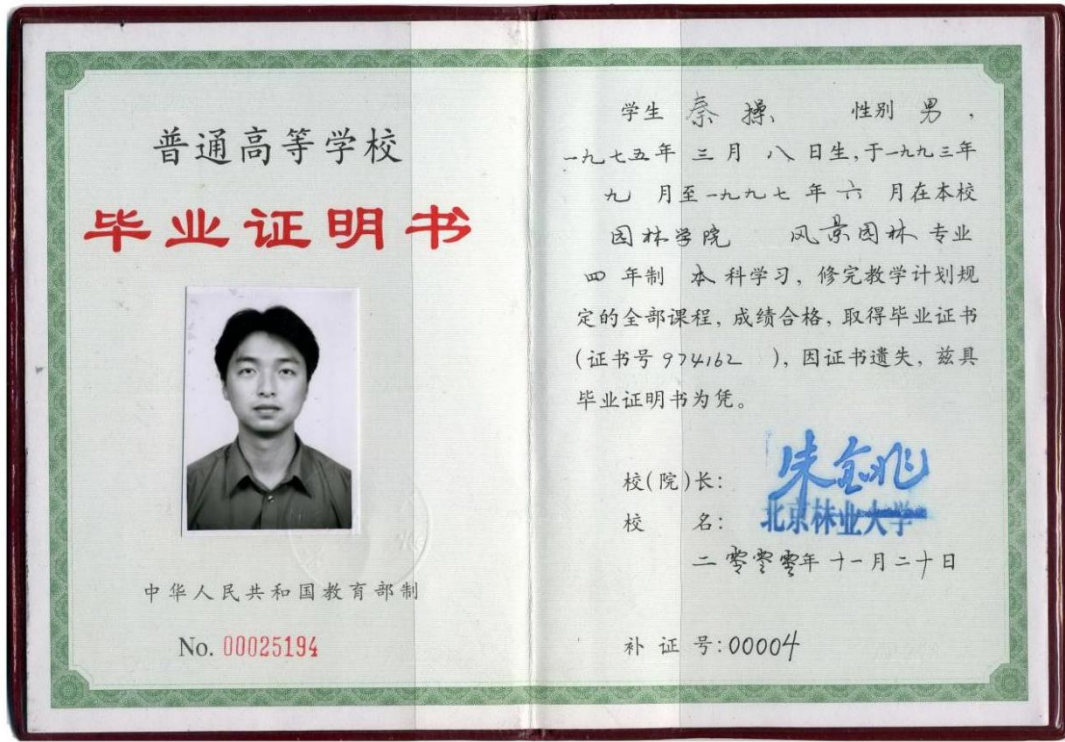 普通高等学校
毕业证明书
中华人民共和国教育部制
No. 00025194
学生 秦操 性别 男，
一九七五年 三月 八 日生，于一九九三年
九 月至一九九七 年 六 月在本校
园林学院 风景园林 专业
四 年制 本 科学习，修完教学计划规
定的全部课程，成绩合格，取得毕业证书
(证书号 974162 )，因证书遗失，兹具
毕业证明书为凭。
校(院)长: 朱金兆
校 名: 北京林业大学
二零零零年十一月二十日
补 证 号:00004